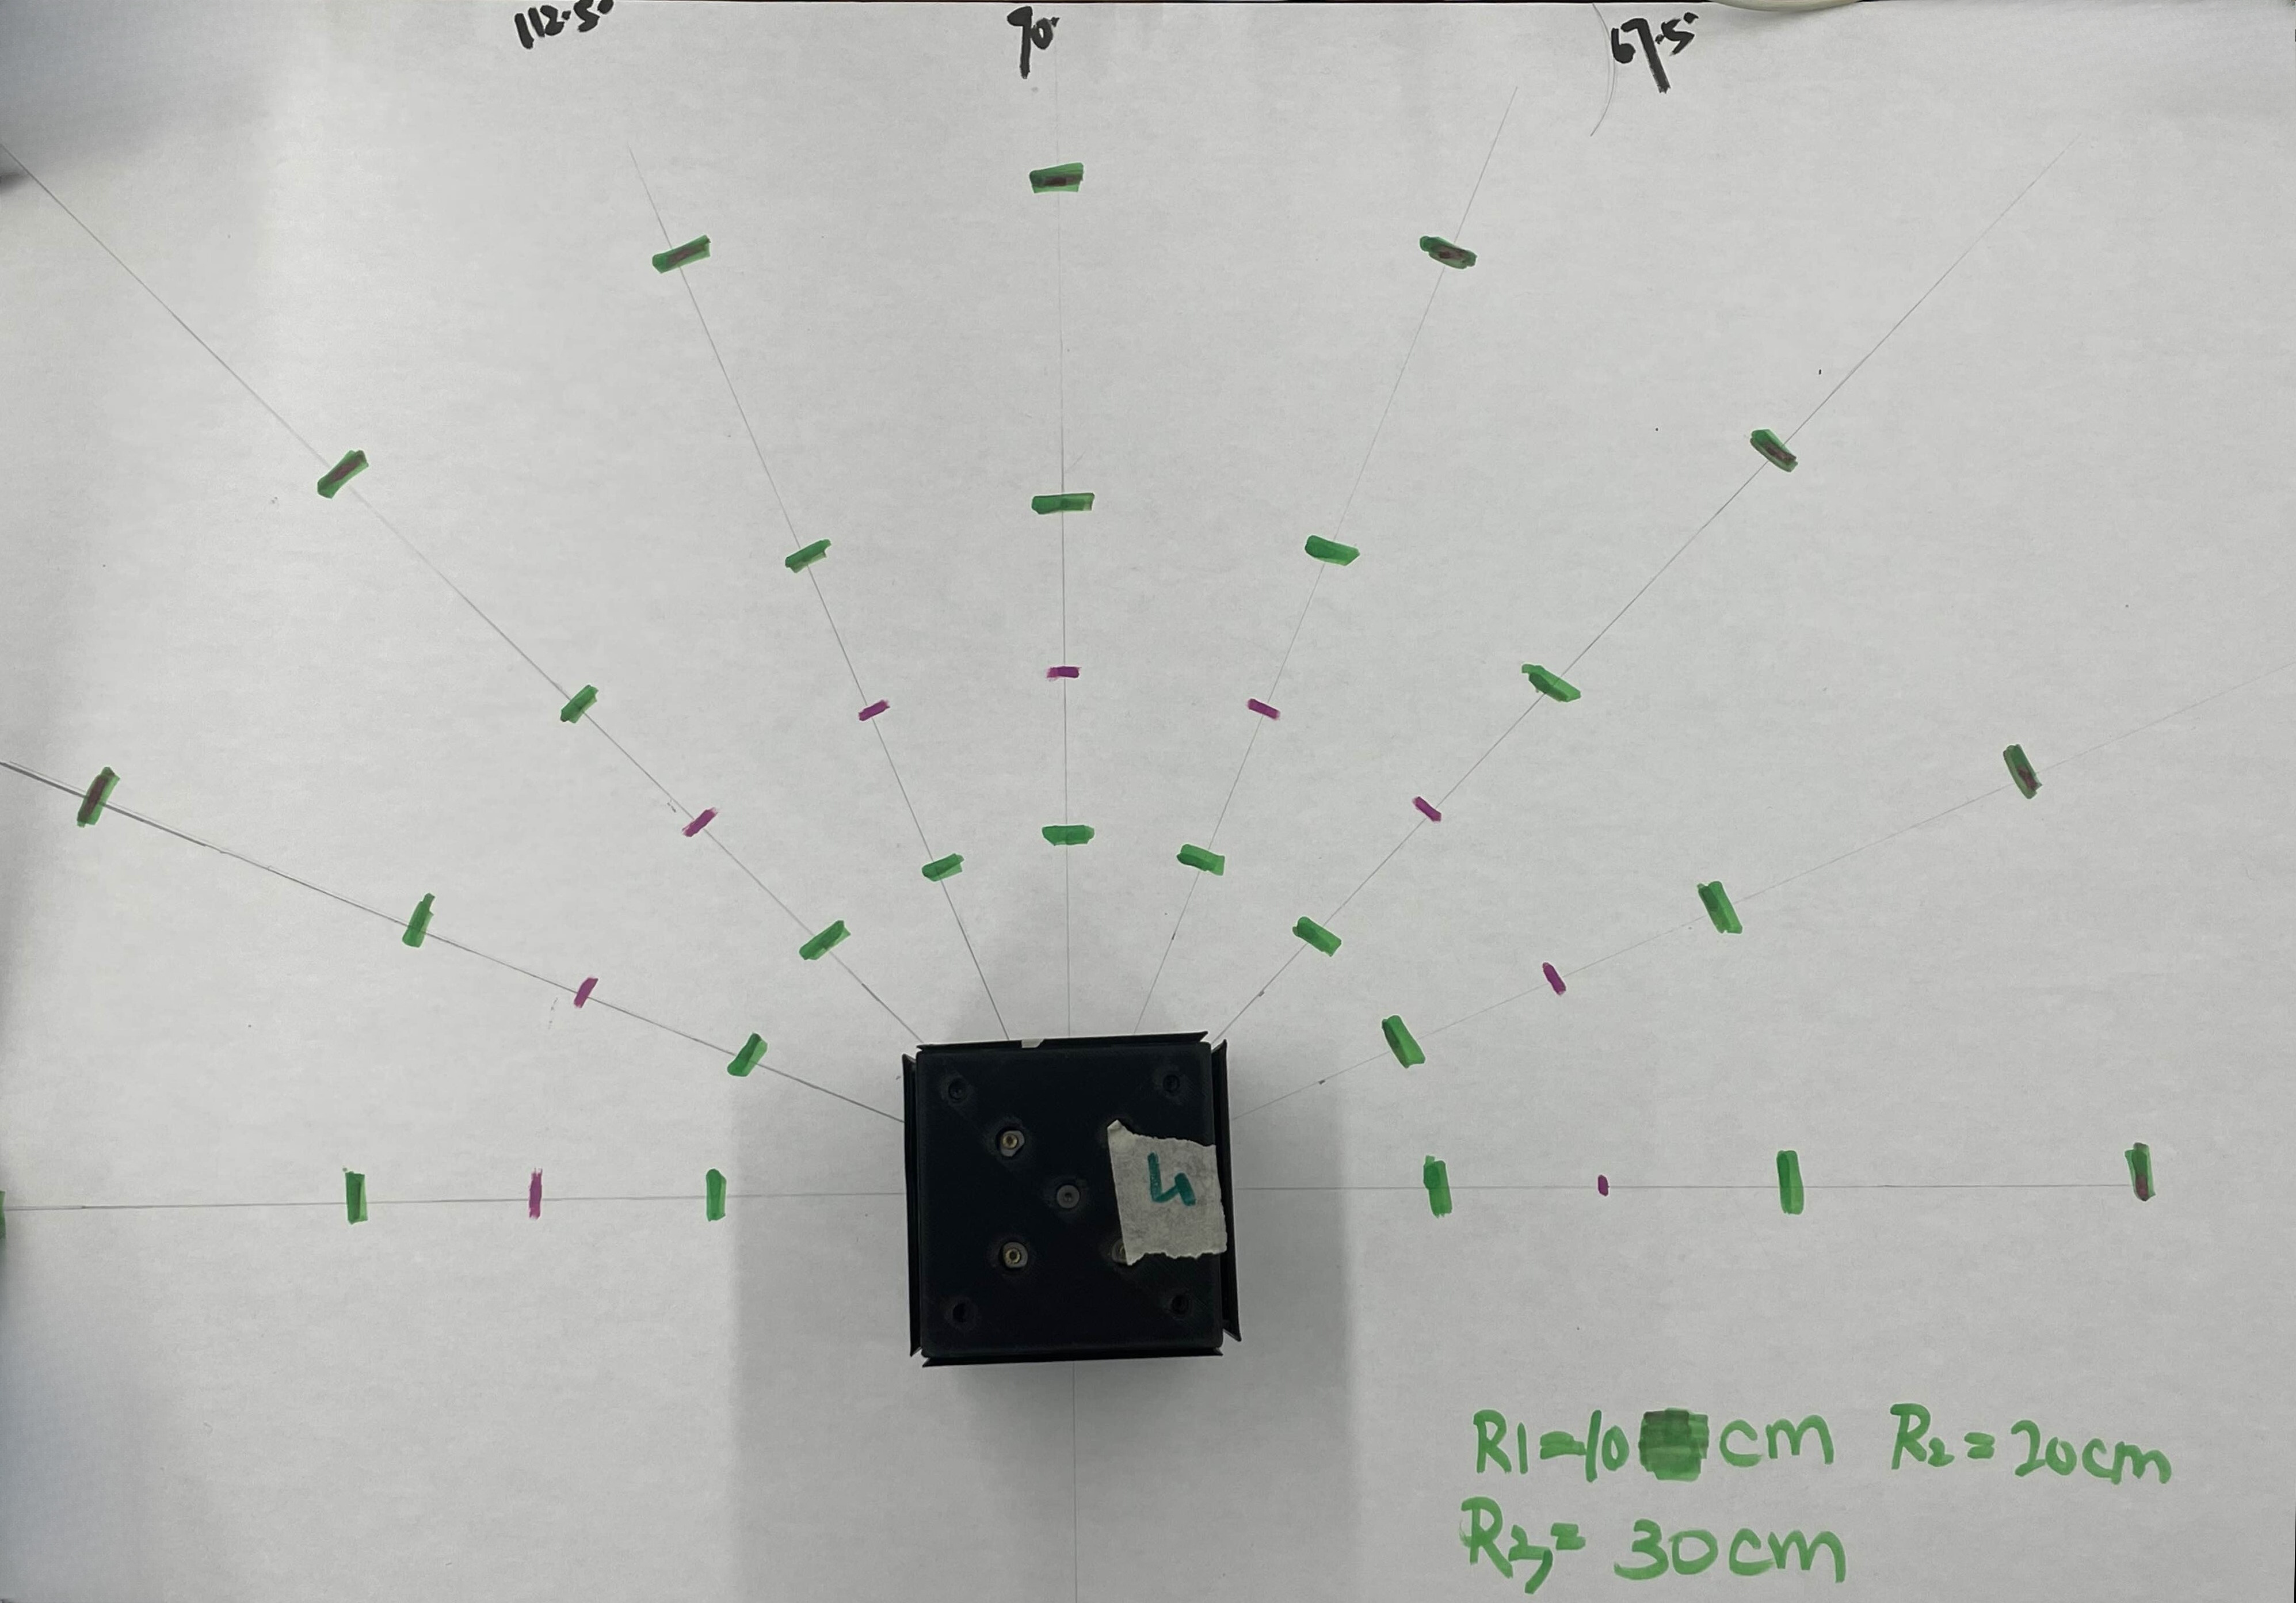 112.5°
90°
67.5°
4
R1=10 cm R2=20cm
R3= 30cm